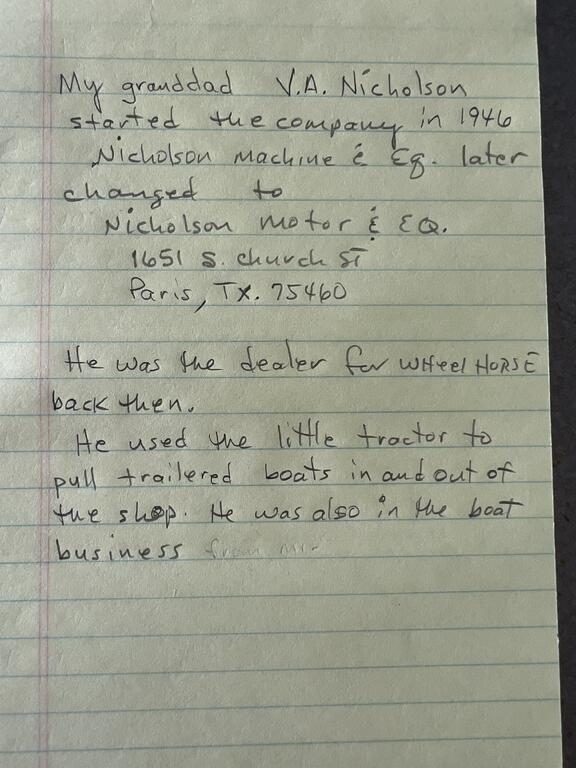 My granddad V.A. Nicholson
started the company in 1946
Nicholson Machine & Eq. later
changed to
Nicholson Motor & EQ.
1651 S. church ST
Paris, TX. 75460
He was the dealer for WHeel HORSE
back then.
He used the little tractor to
pull trailered boats in and out of
the shop. He was also in the boat
business from